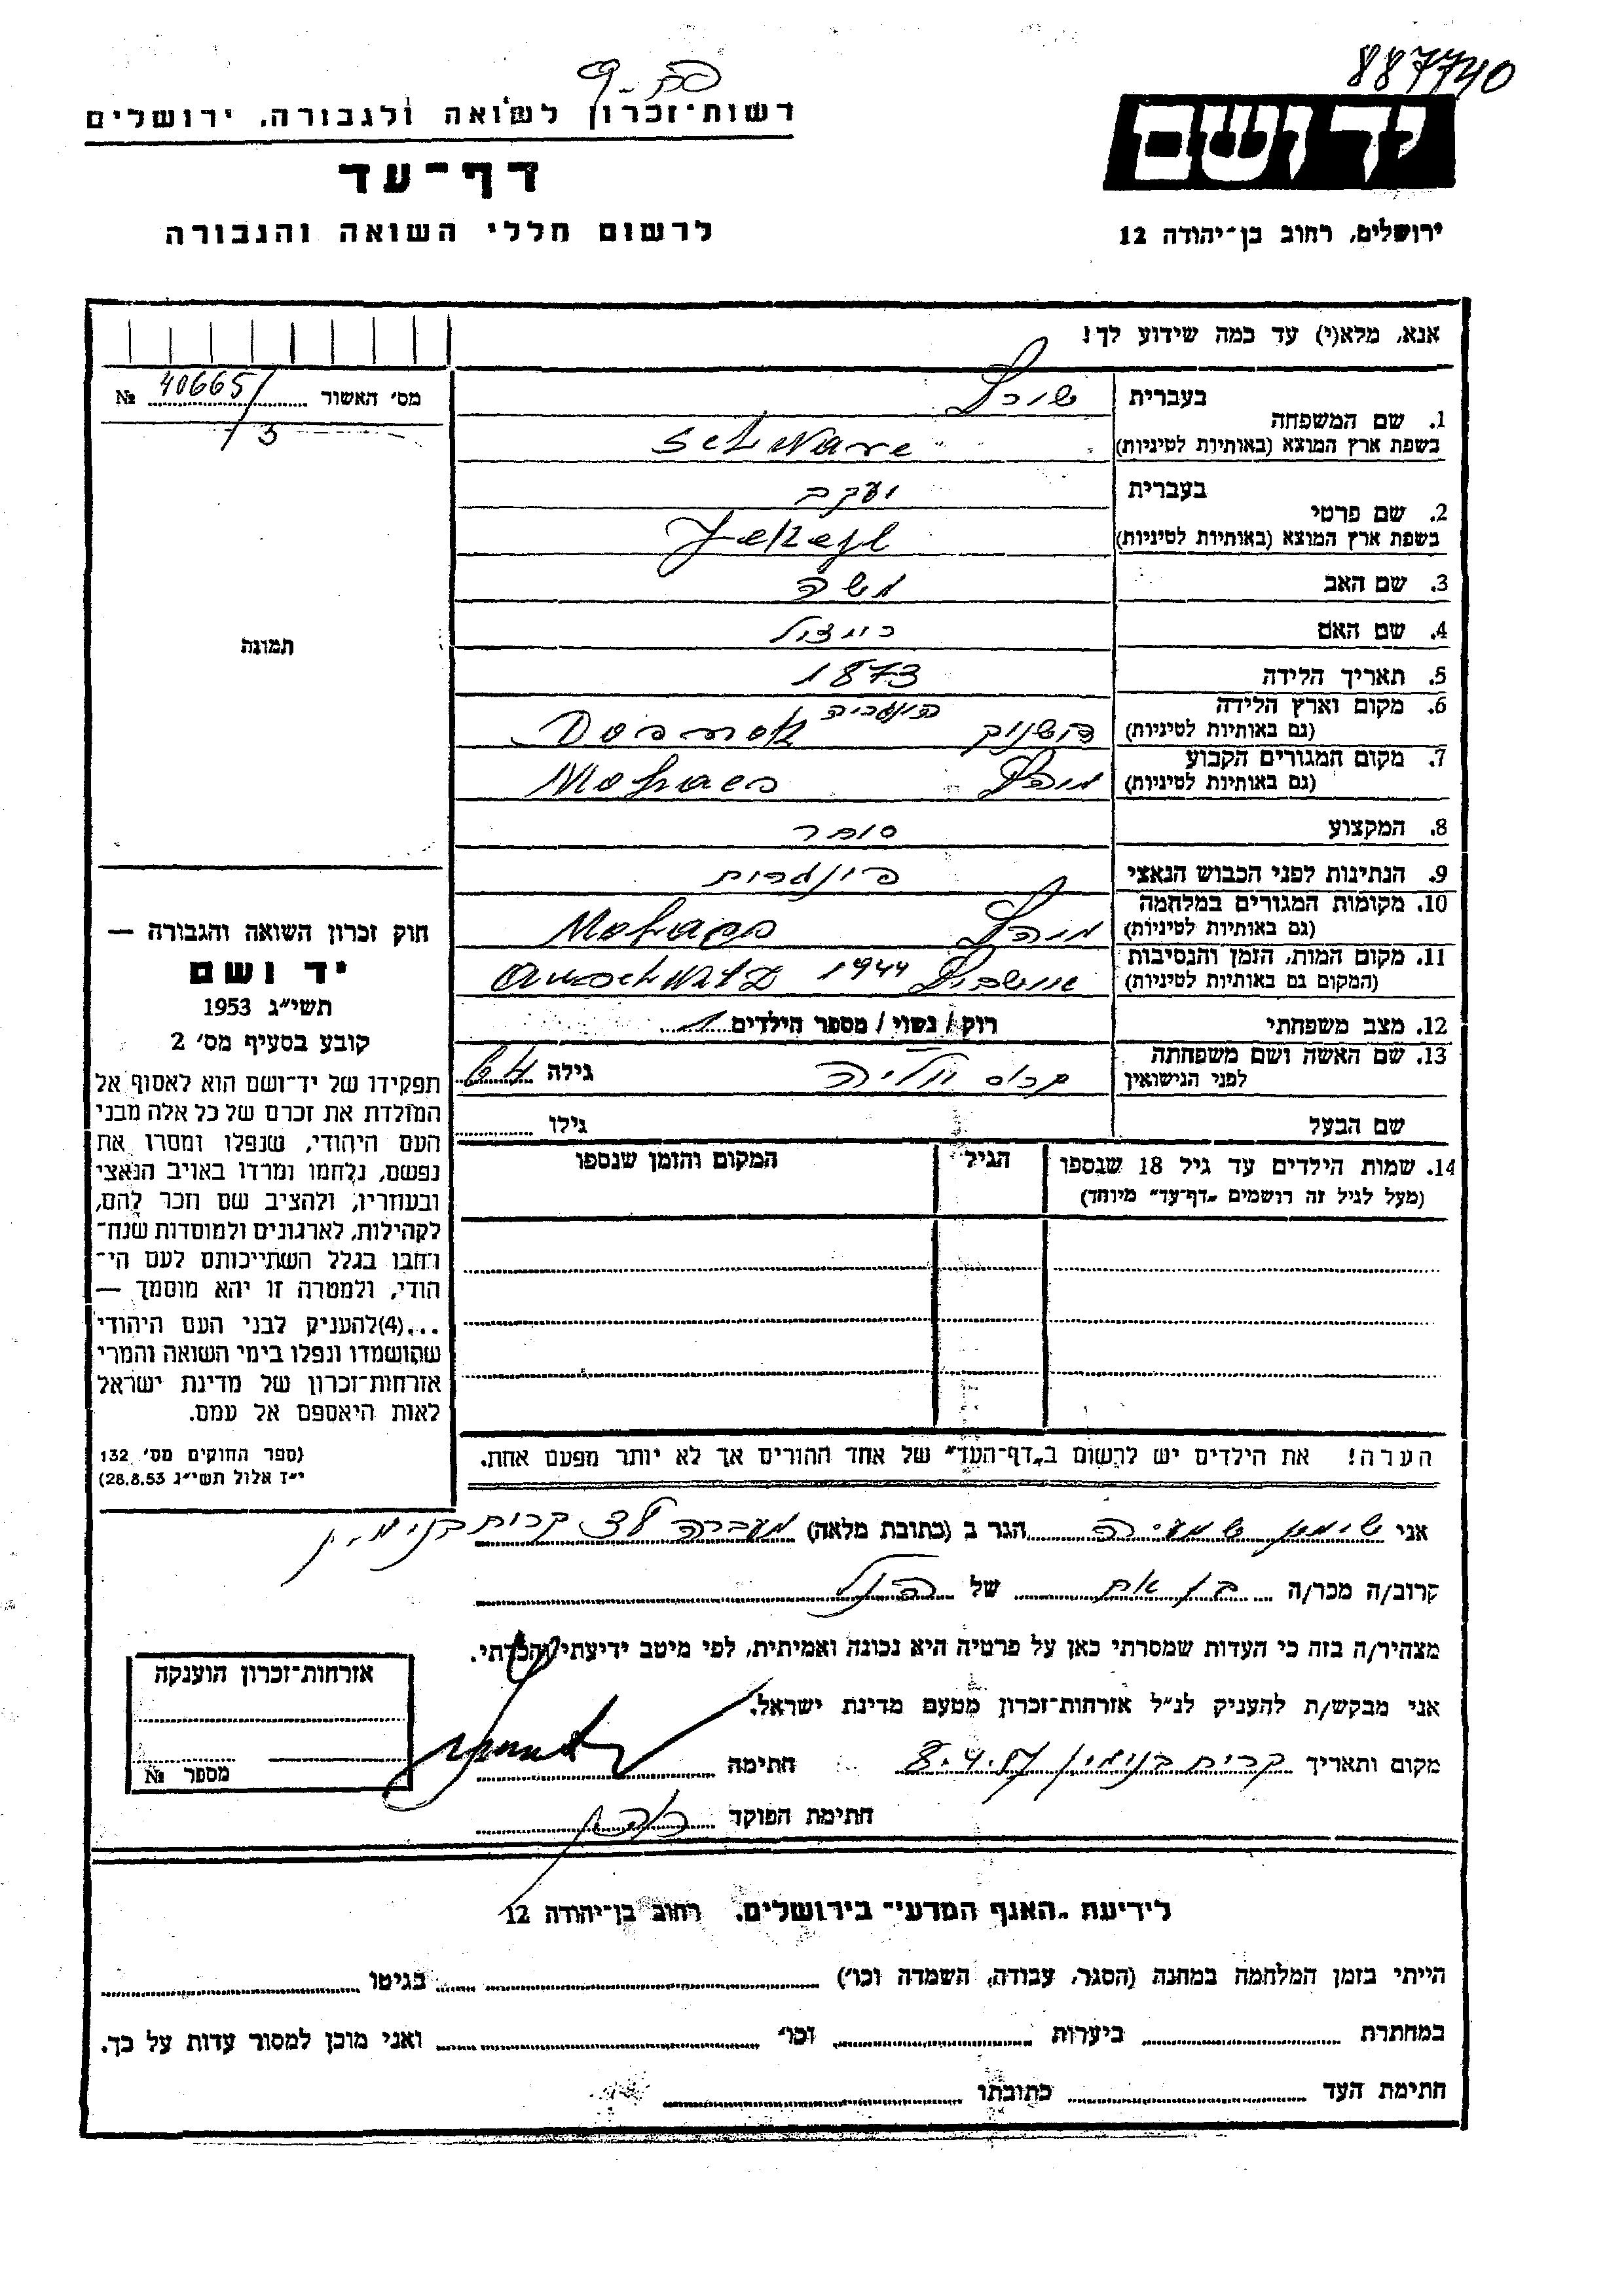 887740
רשות־זכרון לשואה ולגבורה, ירושלים
יד ושם
דף־עד
לרשום חללי השואה והגבורה
ירושלים, רחוב בן־יהודה 12
אנא, מלא(י) עד כמה שידוע לך!
מס׳ האשור 40665/ №
/3
1. שם המשפחה
בעברית שורץ
בשפת ארץ המוצא (באותיות לטיניות) Schwarc
2. שם פרטי
בעברית יעקב
בשפת ארץ המוצא (באותיות לטיניות)
3. שם האב משה
4. שם האם
5. תאריך הלידה 1873
6. מקום וארץ הלידה הונגריה
(גם באותיות לטיניות)
7. מקום המגורים הקבוע
(גם באותיות לטיניות) מוהץ Mohacs
8. המקצוע סוחר
9. הנתינות לפני הכבוש הנאצי הונגרית
10. מקומות המגורים במלחמה
(גם באותיות לטיניות) מוהץ Mohacs
11. מקום המות, הזמן והנסיבות
(המקום גם באותיות לטיניות) אושביץ 1944
12. מצב משפחתי רוק/ נשוי / מספר הילדים 1
13. שם האשה ושם משפחתה
לפני הנישואין גילה
שם הבעל גילו
14. שמות הילדים עד גיל 18 שנספו הגיל המקום והזמן שנספו
(מעל לגיל זה רושמים „דף־עד״ מיוחד)
תמונה
חוק זכרון השואה והגבורה —
יד ושם
תשי״ג 1953
קובע בסעיף מס׳ 2
תפקידו של יד־ושם הוא לאסוף אל
המולדת את זכרם של כל אלה מבני
העם היהודי, שנפלו ומסרו את
נפשם, נלחמו ומרדו באויב הנאצי
ובעוזריו, ולהציב שם וזכר להם,
לקהילות, לארגונים ולמוסדות שנח־
רבו בגלל השתייכותם לעם הי־
הודי, ולמטרה זו יהא מוסמך —
...(4)להעניק לבני העם היהודי
שהושמדו ונפלו בימי השואה והמרי
אזרחות־זכרון של מדינת ישראל
לאות היאספם אל עמם.
(ספר החוקים מס׳ 132
י״ז אלול תשי״ג 28.8.53)
הערה! את הילדים יש לרשום ב„דף־העד״ של אחד ההורים אך לא יותר מפעם אחת.
אני שימון שמעיה הגר ב (כתובת מלאה) מעברה קרית בנימין
קרוב/ה מכר/ה בן אח של הנ״ל
מצהיר/ה בזה כי העדות שמסרתי כאן על פרטיה היא נכונה ואמיתית, לפי מיטב ידיעתי והכרתי.
אני מבקש/ת להעניק לנ״ל אזרחות־זכרון מטעם מדינת ישראל.
מקום ותאריך קרית בנימין 8.4.57 חתימה
חתימת הפוקד
אזרחות־זכרון הוענקה
מספר №
לידיעת „האגף המדעי״ בירושלים, רחוב בן־יהודה 12
הייתי בזמן המלחמה במחנה (הסגר, עבודה, השמדה וכו׳) בגיטו
במחתרת ביערות וכו׳ ואני מוכן למסור עדות על כך.
חתימת העד כתובתו